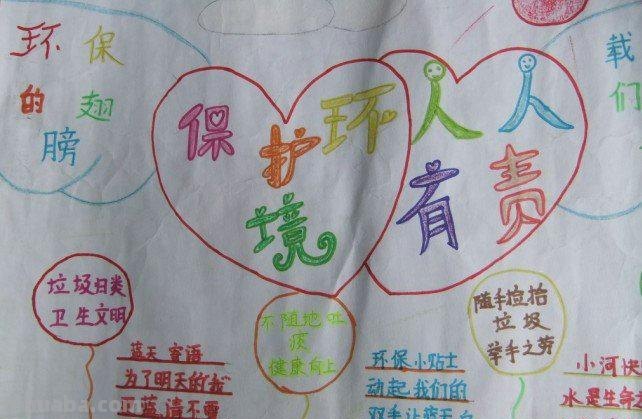 环保
的翅
膀
保护环
境
人人
有责
载
们
垃圾归类
卫生文明
不随地吐
痰
健康向上
随手捡拾
垃圾
举手之劳
蓝天寄语
为了明天的
蓝请不要
环保小贴士
动起我们的
双手让蓝天白
小河快
水是生命